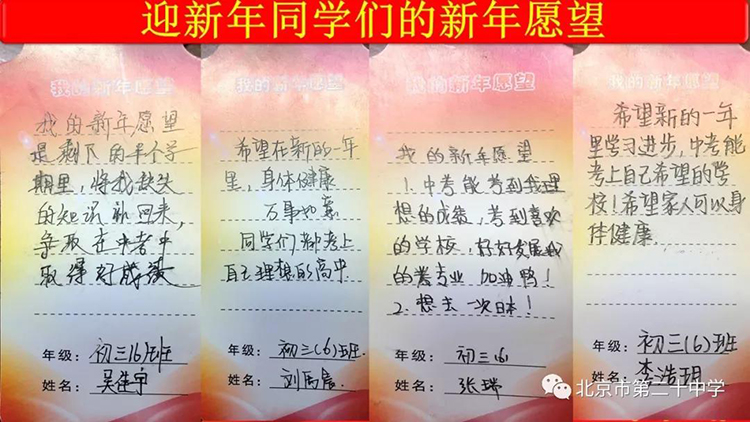 迎新年同学们的新年愿望
我的新年愿望
我的新年愿望
是剩下的半个学
期里，将我缺失
的知识补回来，
争取在中考中
取得好成绩
年级：初三(6)班
姓名：吴佳宇
我的新年愿望
希望在新的一年
里，身体健康
万事如意
同学们都考上
自己理想的高中
年级：初三(6)班.
姓名：刘
我的新年愿望
我的新年愿望
1.中考能考到我理
想的成绩，考到喜欢
的学校，好好发展我
的 专业 加油鸭！
2.想去一次日本！
年级：初三(6)
姓名：张瑞
希望新的一年
里学习进步，中考能
考上自己希望的学
校！希望家人可以身
体健康.
年级：初三(6)班
姓名：李浩玥
北京市第二十中学